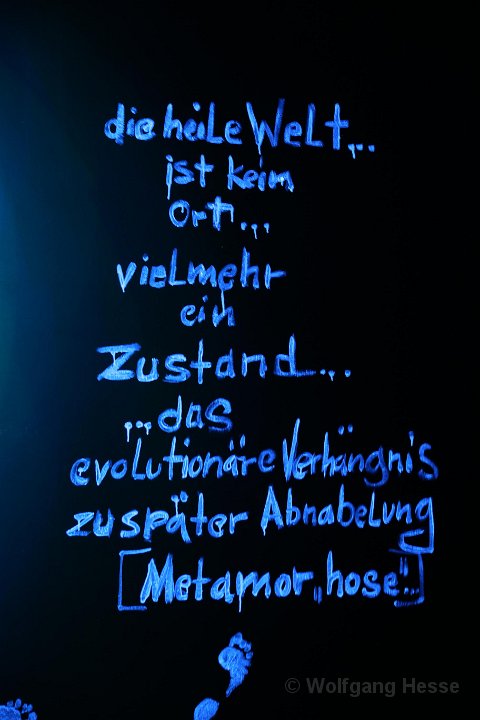 die heile Welt...
ist kein
ort...
vielmehr
ein
Zustand...
...das
evolutionäre Verhängnis
zu später Abnabelung
[Metamor„hose"...]
© Wolfgang Hesse